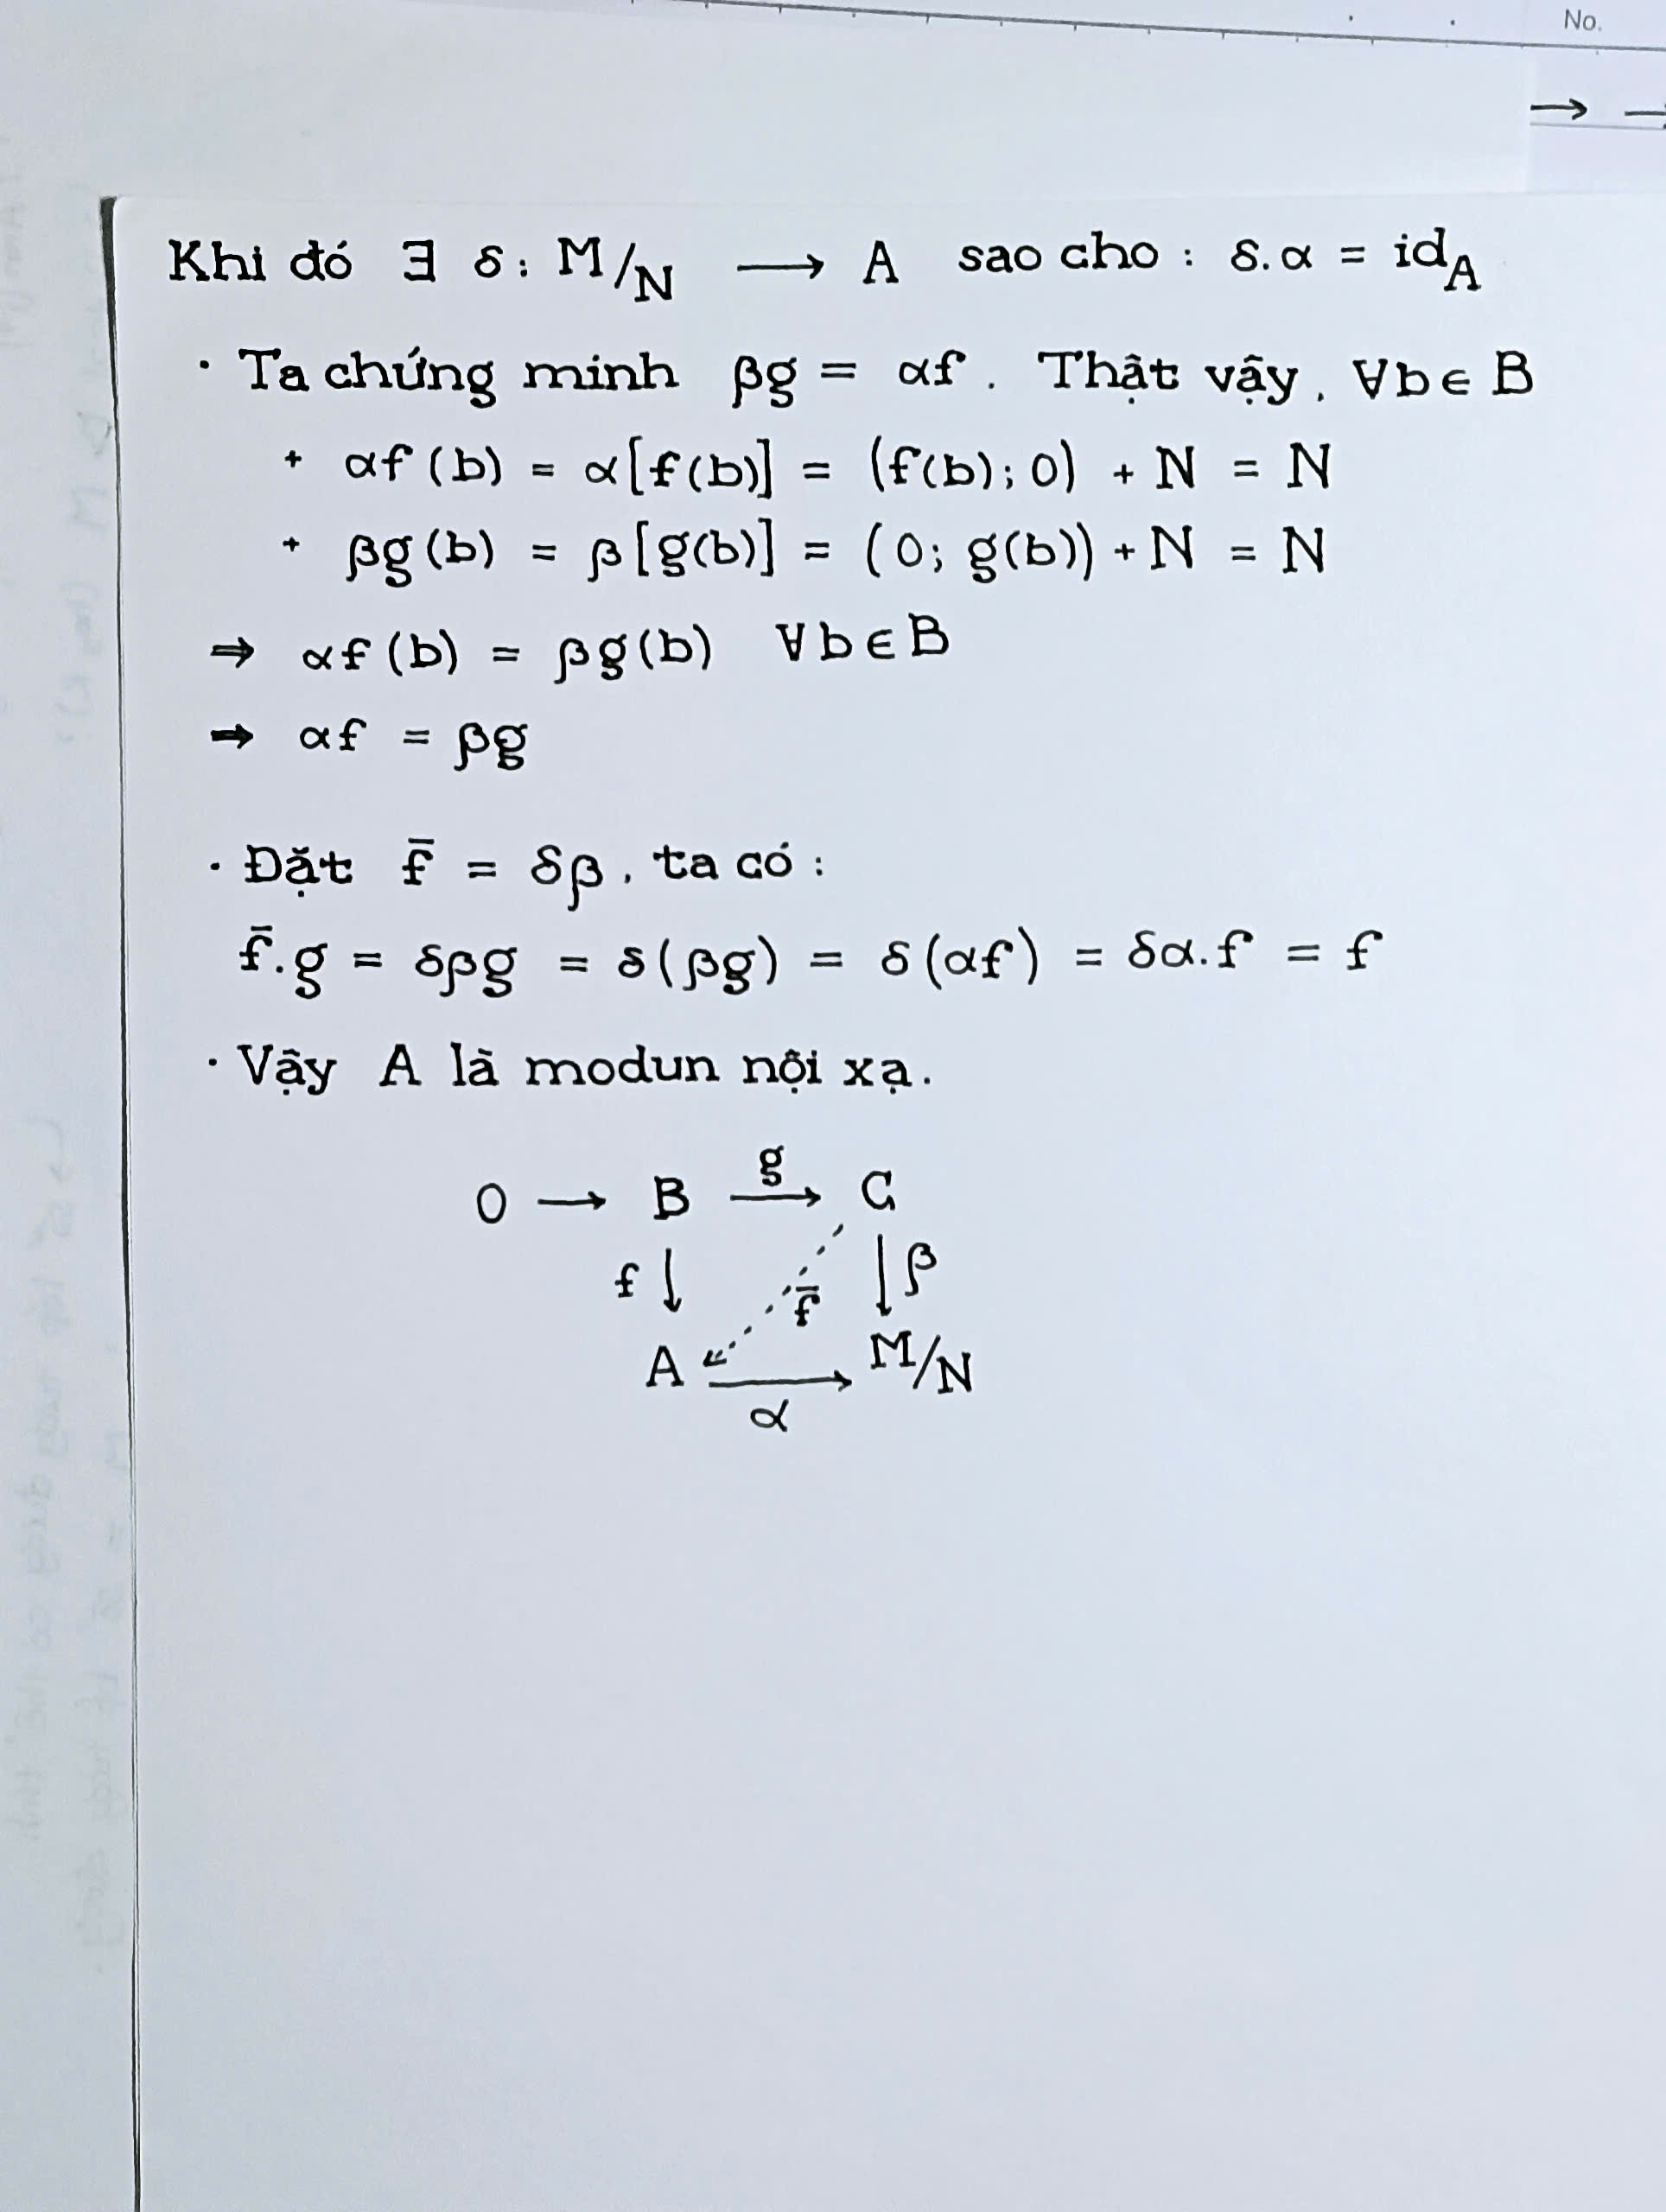 No.
→
Khi đó ∃ δ : M/N ⟶ A sao cho : δ.α = id_A
· Ta chứng minh βg = αf . Thật vậy, ∀b ∈ B
+ αf (b) = α[f(b)] = (f(b); 0) + N = N
+ βg (b) = β[g(b)] = (0; g(b)) + N = N
⇒ αf (b) = βg(b) ∀b ∈ B
⇒ αf = βg
· Đặt f̄ = δβ, ta có :
f̄.g = δβg = δ(βg) = δ(αf) = δα.f = f
· Vậy A là modun nội xạ.
g
0 → B → C
f ↓ f̄ ↓ β
A → M/N
α